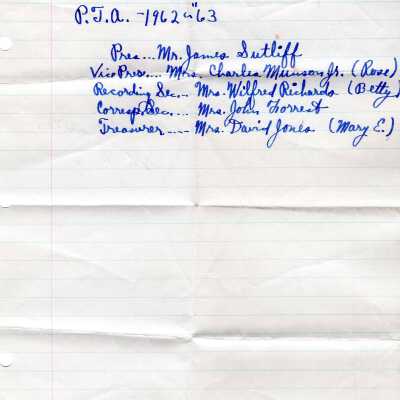 P.T.A. - 1962 - '63
Pres... Mr. James Sutliff
Vice Pres.... Mrs. Charles Munson Jr. (Rose)
Recording Sec... Mrs. Wilfred Richards (Betty)
Corresp. Sec.... Mrs. John Forrest
Treasurer ---- Mrs. David Jones (Mary E.)